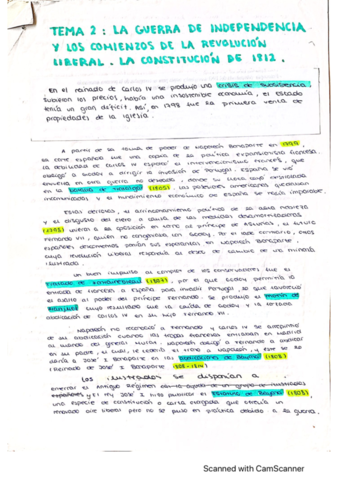 TEMA 2 : LA GUERRA DE INDEPENDENCIA
Y LOS COMIENZOS DE LA REVOLUCIÓN
LIBERAL. LA CONSTITUCIÓN DE 1812.
En el reinado de Carlos IV se produjo una crisis de subsistencia,
subieron los precios, había una insostenible economía, el estado
tenía un gran déficit, así, en 1798 fue la primera venta de
propiedades de la iglesia.
A partir de la toma de poder de Napoleón Bonaparte en 1799,
la corte española fue una de la política expansionista francesa.
la debilidad de Carlos IV el intervencionismo francés, que
obligó a Godoy a dirigir la invasión de Portugal. España se vio
envuelta en esta guerra no deseada, donde su flota cayó
en la batalla de Trafalgar (1805). Las posesiones americanas quedaron
incomunicadas y el hundimiento económico de España se hacía imparable.
Esta derrota, el político de la alta nobleza
y el disgusto del clero a causa de las medidas desamortizadoras
(1798) unieron a la oposición en torno al príncipe de Asturias, el futuro
Fernando VII, quien no congeniaba con Godoy. Por el lado contrario, otros
españoles ponían sus esperanzas en Napoleón Bonaparte,
cuya revolución liberal respondía al deseo de cambio de una minoría
ilustrada.
Un buen impulso al complot de los conservadores fue el
Tratado de Fontainebleau (1807), por el que Godoy permitía la
entrada de franceses a España para invadir Portugal, lo que
el exilio al poder del príncipe Fernando. Se produjo el motín de
Aranjuez cuyo resultado fue la caída de Godoy y la
abdicación de Carlos IV en su hijo Fernando VII.
Napoleón no reconoció a Fernando y Carlos IV se arrepintió
de su abdicación cuando las tropas francesas entraban en Madrid
al mando del general Murat. Napoleón obligó a Fernando a abdicar
en su padre, el cual, le cedería el trono a Napoleón, y este se lo
daría a José I Bonaparte en las abdicaciones de Bayona (1808)
(Reinado de José I Bonaparte 1808-1814)
Los ilustrados se disponían a
enterrar el Antiguo Régimen
españoles y el rey José I hizo publicar el Estatuto de Bayona (1808),
una especie de constitución o carta otorgada que ofrecía un
reinado más liberal pero no se puso en práctica debido a la guerra.
Scanned with CamScanner